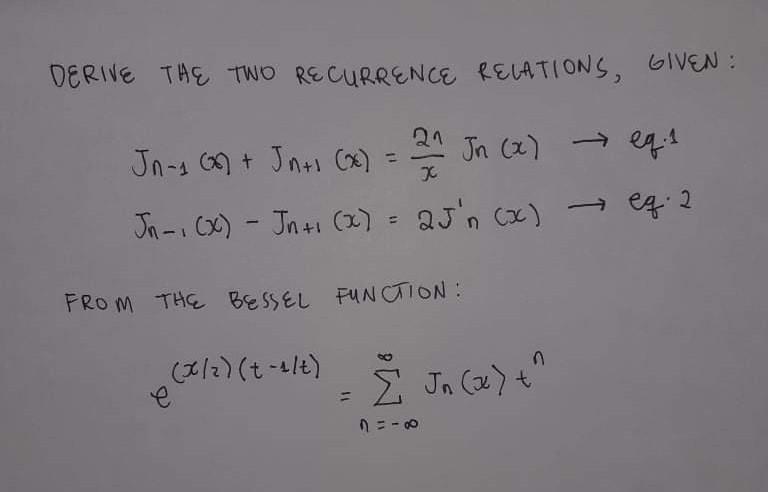 DERIVE THE TWO RECURRENCE RELATIONS, GIVEN:
Jn-1 (x) + Jn+1 (x) = 2n/x Jn (x) → eq.1
Jn-1 (x) - Jn+1 (x) = 2J'n (x) → eq.2
FROM THE BESSEL FUNCTION:
e^(x/2)(t-1/t) = ∞∑n=-∞ Jn(x) t^n